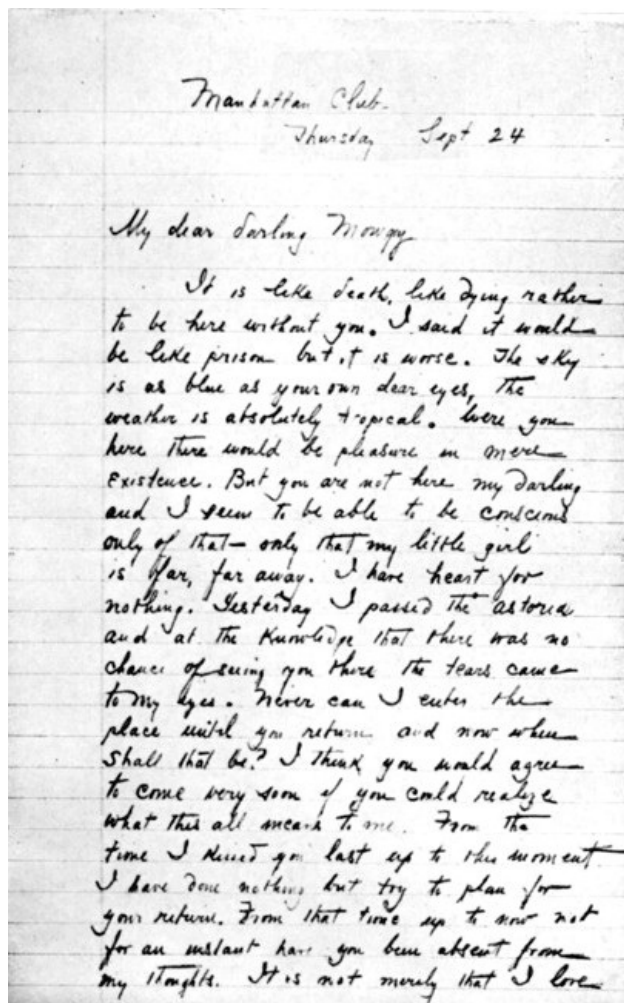 Manhattan Club.
Thursday Sept 24
My dear darling Mowgy
It is like death, like dying rather
to be here without you. I said it would
be like prison but it is worse. The sky
is as blue as your own dear eyes, the
weather is absolutely tropical. Were you
here there would be pleasure in mere
existence. But you are not here my darling
and I seem to be able to be conscious
only of that – only that my little girl
is far, far away. I have heart for
nothing. Yesterday I passed the astoria
and at the knowledge that there was no
chance of seeing you there the tears came
to my eyes. Never can I enter the
place until you return and now when
shall that be? I think you would agree
to come very soon if you could realize
what this all means to me. From the
time I kissed you last up to this moment
I have done nothing but try to plan for
your return. From that time up to now not
for an instant have you been absent from
my thoughts. It is not merely that I love